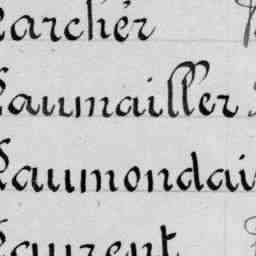 Larcher
Laumailler
Laumondai
Laurent